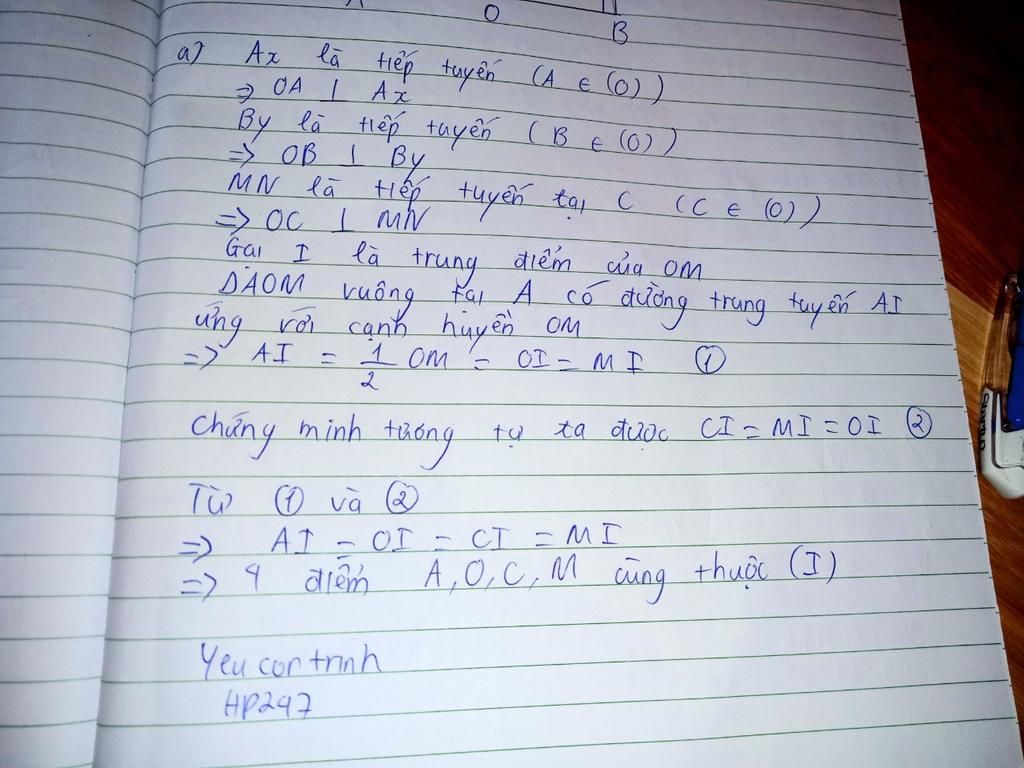 O
B
a) Ax là tiếp tuyến (A ∈ (O))
⇒ OA ⊥ Ax
By là tiếp tuyến (B ∈ (O))
⇒ OB ⊥ By
MN là tiếp tuyến tại C (C ∈ (O))
⇒ OC ⊥ MN
Gọi I là trung điểm của OM
ΔAOM vuông tại A có đường trung tuyến AI
ứng với cạnh huyền OM
⇒ AI = 1/2 OM = OI = MI ①
Chứng minh tương tự ta được CI = MI = OI ②
Từ ① và ②
⇒ AI = OI = CI = MI
⇒ 4 điểm A, O, C, M cùng thuộc (I)
Yeu cor trinh
HP247